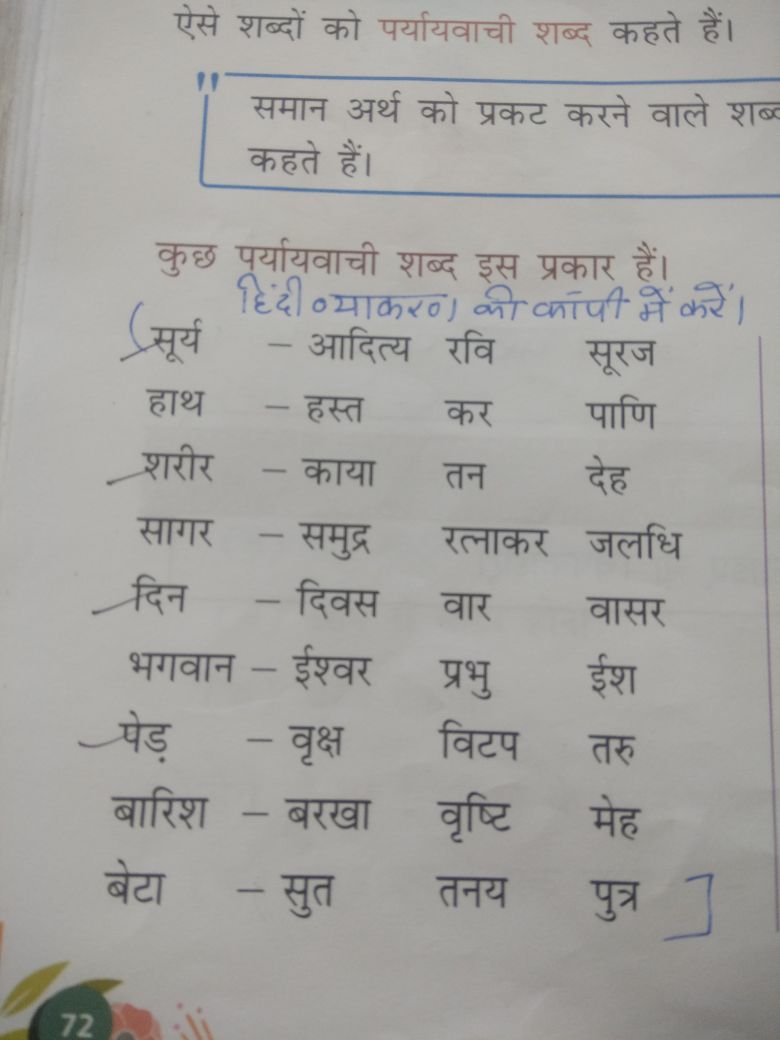 ऐसे शब्दों को पर्यायवाची शब्द कहते हैं।
समान अर्थ को प्रकट करने वाले
कहते हैं।
कुछ पर्यायवाची शब्द इस प्रकार हैं।
हिंदी व्याकरण की कॉपी में करें।
सूर्य – आदित्य रवि सूरज
हाथ – हस्त कर पाणि
शरीर – काया तन देह
सागर – समुद्र रत्नाकर जलधि
दिन – दिवस वार वासर
भगवान – ईश्वर प्रभु ईश
पेड़ – वृक्ष विटप तरु
बारिश – बरखा वृष्टि मेह
बेटा – सुत तनय पुत्र
72